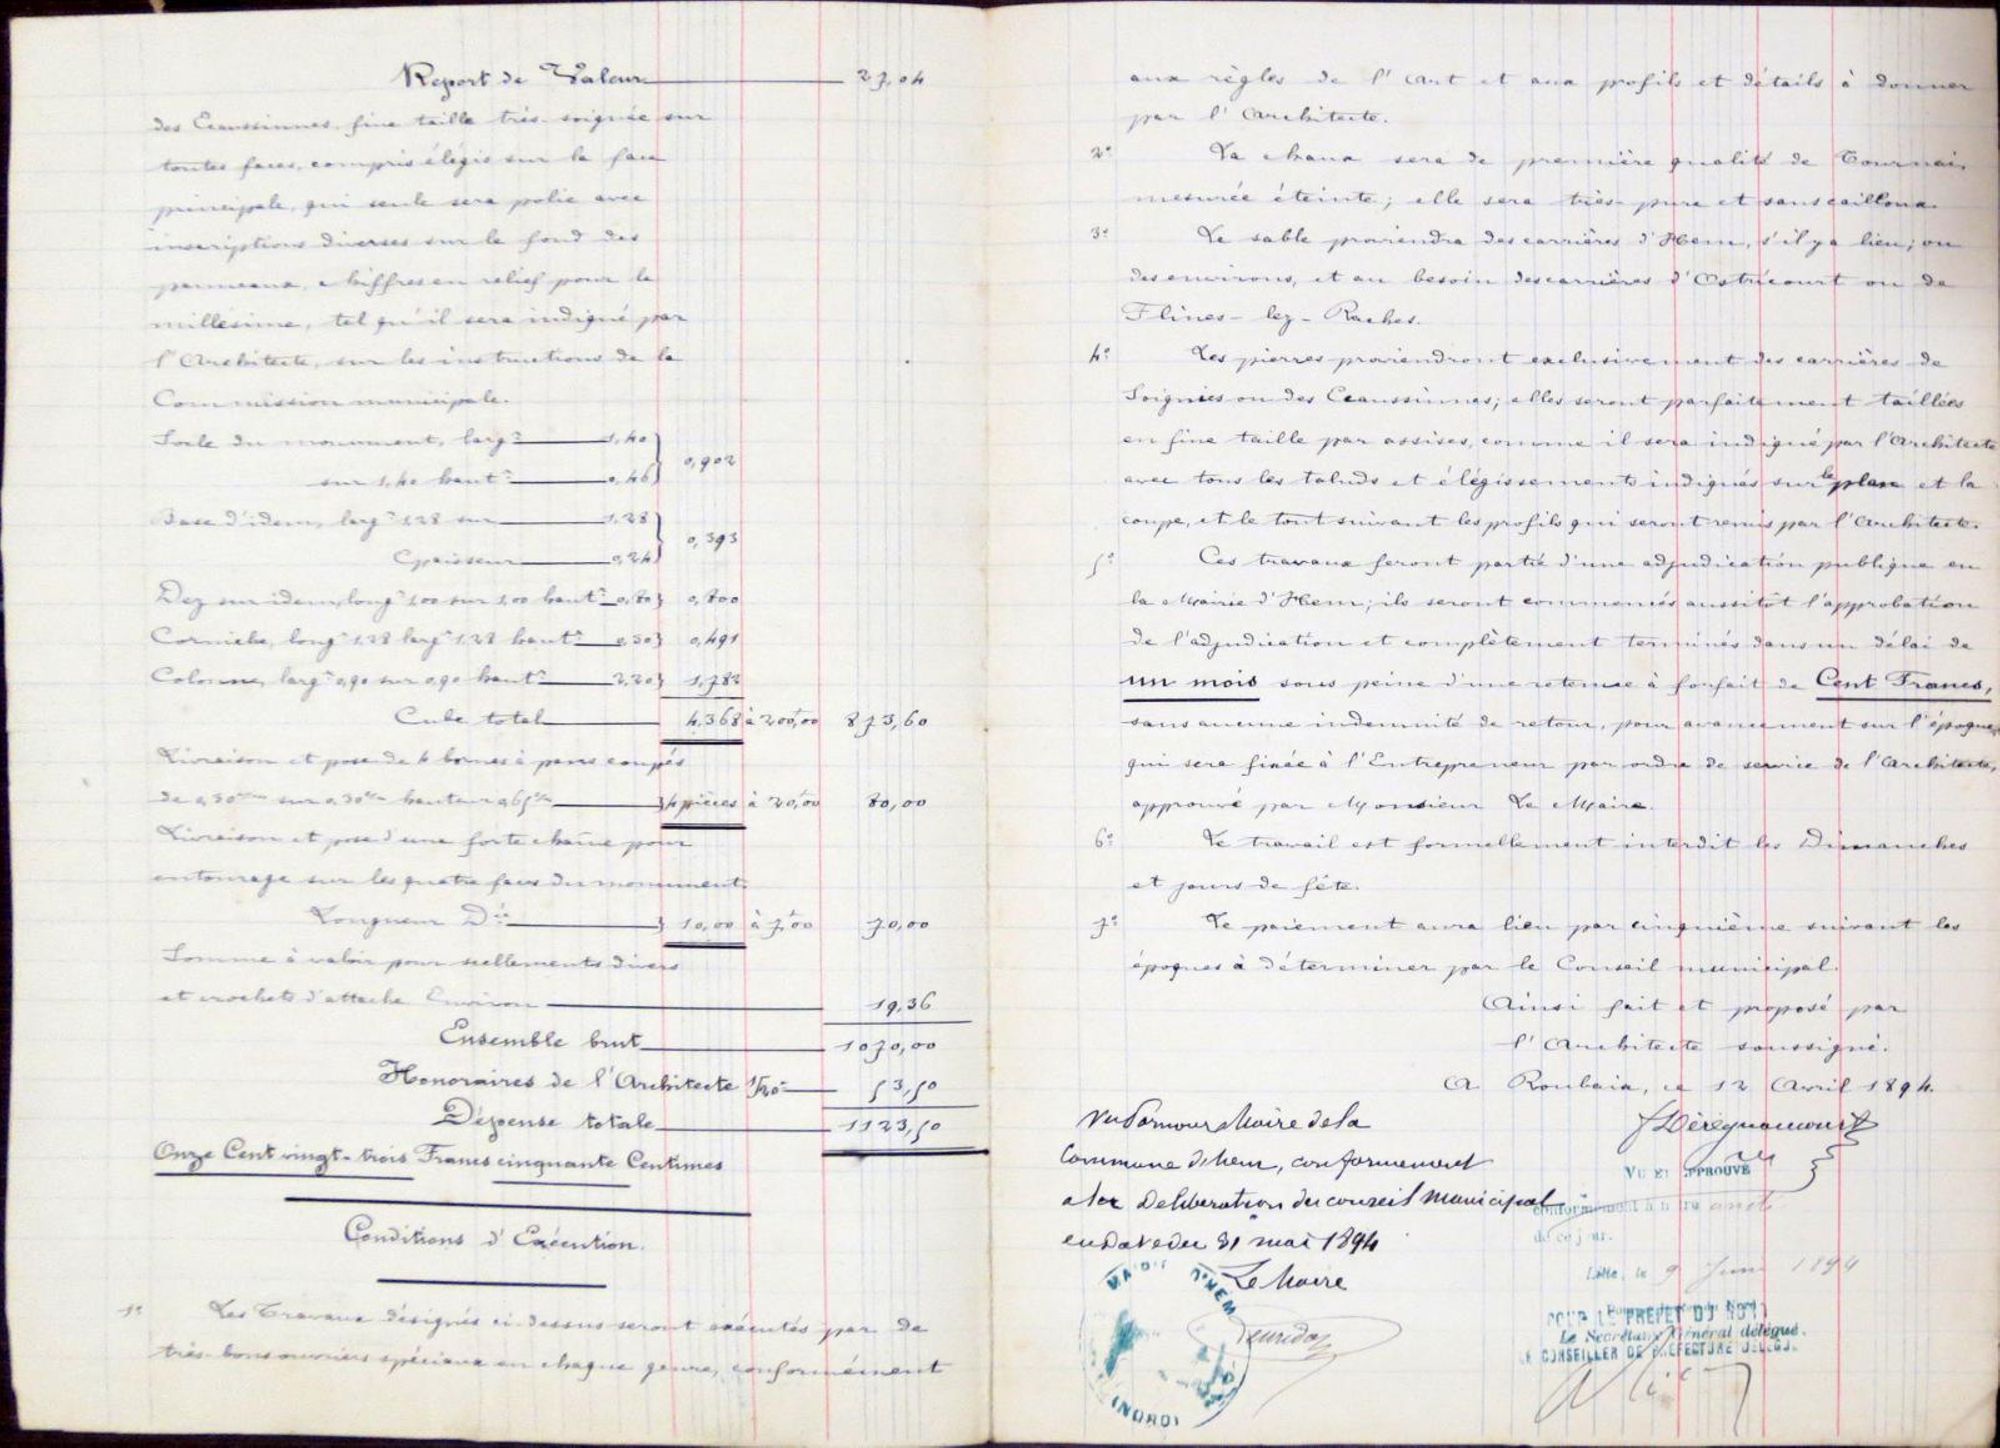 Report de Valeur 27,04
des Ecaussinnes, fine taille très-soignée sur
toutes faces, compris élégis sur la face
principale, qui seule sera polie avec
inscriptions diverses sur le fond des
panneaux, chiffres en relief pour le
millésime, tel qu'il sera indiqué par
l'Architecte, sur les instructions de la
Commission municipale.
Socle du monument, larg.r 1,40
sur 1,40 haut.r 0,46 } 0,902
Base d'idem, larg.r 1,28 sur 1,28
Epaisseur 0,24 } 0,393
Dez sur idem, long.r 1,00 sur 1,00 haut.r 0,80 } 0,800
Corniche, long.r 1,28 larg.r 1,28 haut.r 0,30 } 0,491
Colonne, larg.r 0,90 sur 0,90 haut.r 2,20 } 1,782
Cube total 4,368 à 200f,00 873,60
Livraison et pose de 4 bornes à pans coupés
de 0,30 c/m sur 0,30 c/m hauteur 0,65 c/m } 4 pièces à 20f,00 80,00
Livraison et pose d'une forte chaîne pour
entourage sur les quatre faces du monument.
Longueur D.te } 10,00 à 7f,00 70,00
Somme à valoir pour scellements divers
et crochets d'attache Environ 19,36
Ensemble brut 1070,00
Honoraires de l'Architecte 1/20e 53,50
Dépense totale 1123,50
Onze Cent vingt-trois Francs cinquante Centimes
Conditions d'Exécution.
1o Les Travaux désignés ci-dessus seront exécutés par de
très-bons ouvriers spéciaux en chaque genre, conformément
aux règles de l'Art et aux profils et détails à donner
par l'Architecte.
2o La chaux sera de première qualité de Tournai
mesurée éteinte; elle sera très-pure et sans cailloux.
3o Le sable proviendra des carrières d'Hem, s'il y a lieu; ou
des environs, et au besoin des carrières d'Ostricourt ou de
Flines-lez-Raches.
4o Les pierres proviendront exclusivement des carrières de
Soignies ou des Ecaussinnes; elles seront parfaitement taillées
en fine taille par assises, comme il sera indiqué par l'Architecte
avec tous les taluds et élégissements indiqués sur le plan et la
coupe, et le tout suivant les profils qui seront remis par l'Architecte.
5o Ces travaux feront partie d'une adjudication publique en
la Mairie d'Hem; ils seront commencés aussitôt l'approbation
de l'adjudication et complètement terminés dans un délai de
un mois sous peine d'une retenue à forfait de Cent Francs,
sans aucune indemnité de retour, pour avancement sur l'époque
qui sera fixée à l'Entrepreneur par ordre de service de l'Architecte,
approuvé par Monsieur Le Maire.
6o Le travail est formellement interdit les Dimanches
et jours de fête.
7o Le paiement aura lieu par cinquième suivant les
époques à déterminer par le Conseil municipal.
Ainsi fait et proposé par
l'Architecte soussigné.
A Roubaix, ce 12 Avril 1894.
Vu Par nous Maire de la
Commune d'hem, conformement
a la Deliberation du conseil Municipal
en Date du 31 mai 1894
Le Maire
MAIRIE D'HEM
(NORD)
VU ET APPROUVÉ
conformément à notre arrêté
de ce jour.
Lille, le 9 Juin 1894
POUR LE PREFET DU NORD
Le Secrétaire Général délégué.
LE CONSEILLER DE PREFECTURE DELEGUÉ